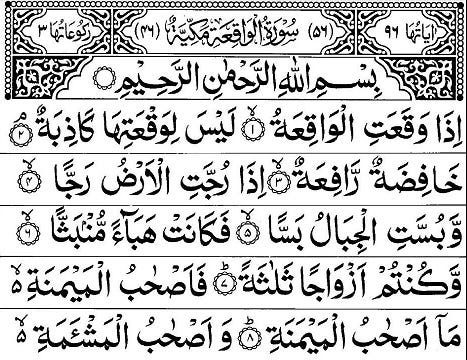 اٰيَاتُهَا ٩٦ (٥٦) سُوْرَةُ الْوَاقِعَةِ مَكِّيَّةٌ (٤٦) رُكُوْعَاتُهَا ٣
بِسْمِ اللّٰهِ الرَّحْمٰنِ الرَّحِيْمِ
اِذَا وَقَعَتِ الْوَاقِعَةُ ۙ‏﴿۱﴾ لَيْسَ لِوَقْعَتِهَا كَاذِبَةٌ ۘ‏﴿۲﴾
خَافِضَةٌ رَّافِعَةٌ ۙ‏﴿۳﴾ اِذَا رُجَّتِ الْاَرْضُ رَجًّا ۙ‏﴿۴﴾
وَّبُسَّتِ الْجِبَالُ بَسًّا ۙ‏﴿۵﴾ فَكَانَتْ هَبَآءً مُّنْۢبَثًّا ۙ‏﴿۶﴾
وَّكُنْتُمْ اَزْوَاجًا ثَلٰثَةً ؕ‏﴿۷﴾ فَاَصْحٰبُ الْمَيْمَنَةِ ۙ۬
مَاۤ اَصْحٰبُ الْمَيْمَنَةِ ؕ‏﴿۸﴾ وَ اَصْحٰبُ الْمَشْئَمَةِ ۙ۬